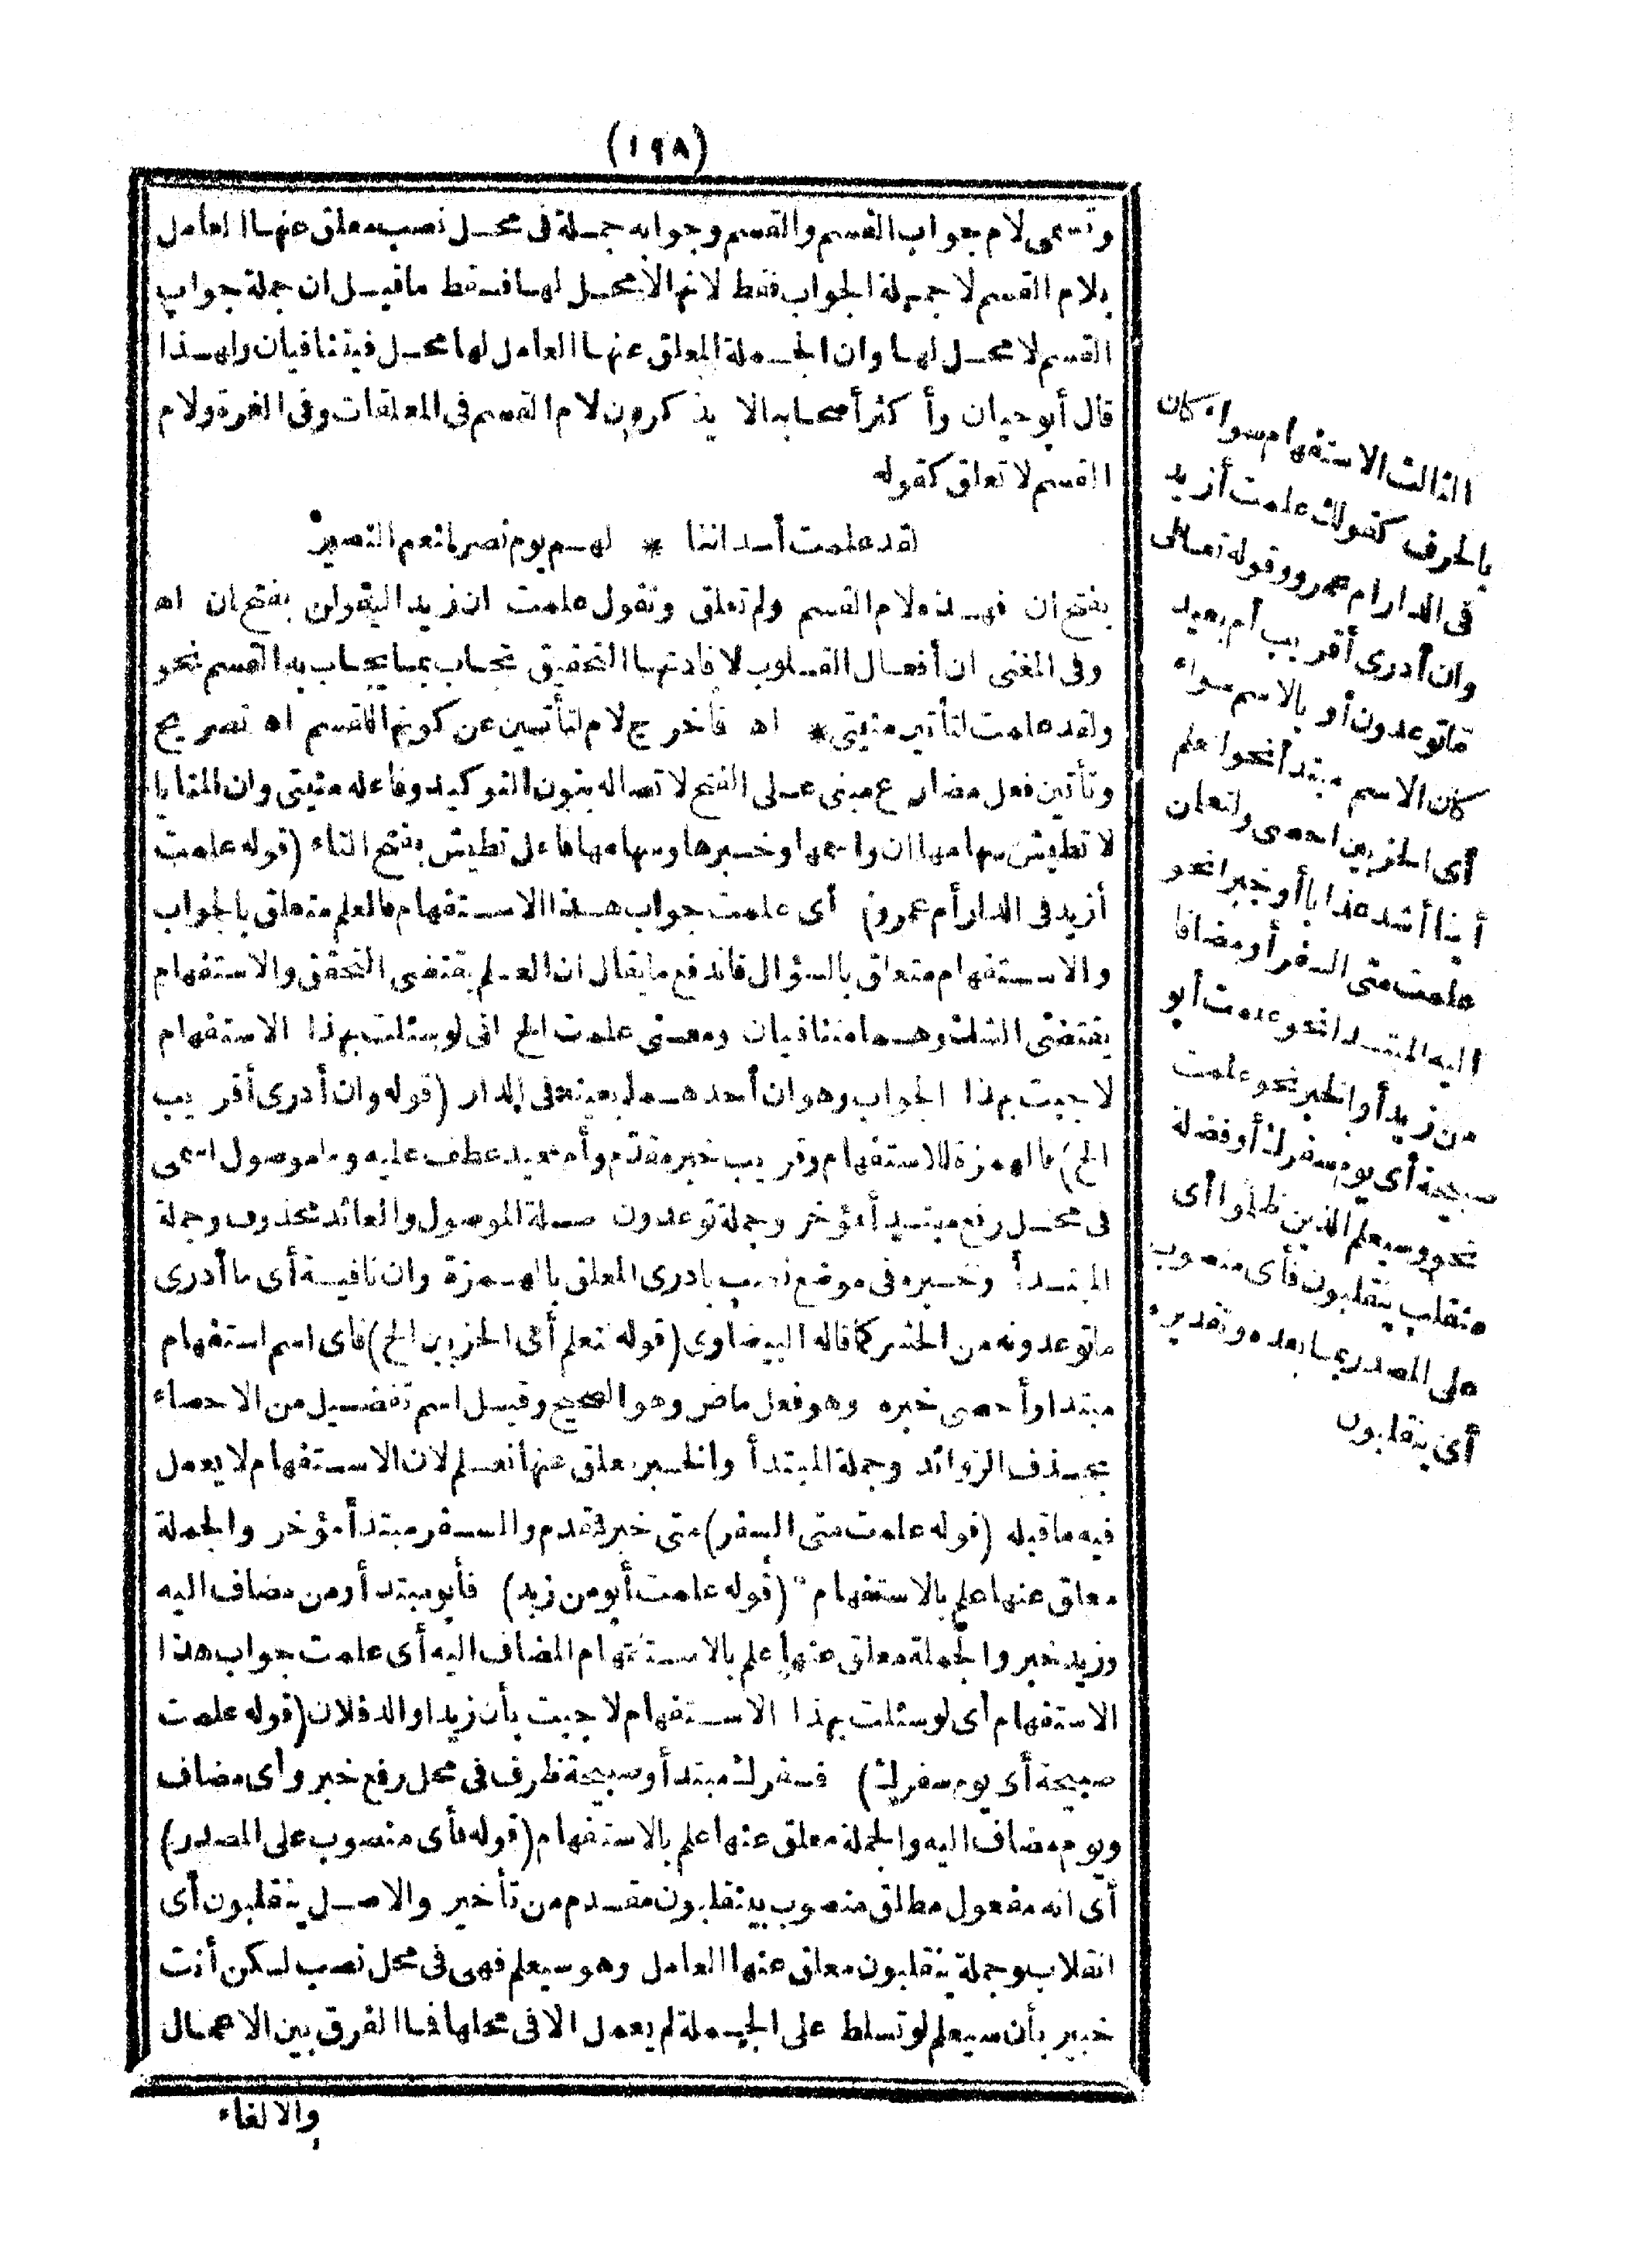 (١٩٨)
وتسمى لام جواب القسم والقسم وجوابه جملة فى محل نصب معلق عنها العامل
بلام القسم لا جملة الجواب فقط لانها لا محل لها فسقط ما قيل ان جملة جواب
القسم لا محل لها وان الجملة المعلق عنها العامل لها محل فيتنافيان ولهذا
قال أبو حيان وأكثر أصحابنا لا يذكرون لام القسم فى المعلقات وفى الغرة ولام
القسم لا تعلق كقوله
لقد علمت أسد اننا * لهم يوم نصر لنعم النصير
بفتح ان فهذه لام القسم ولم تعلق وتقول علمت ان زيدا ليقولن بفتح ان اه
وفى المغنى ان أفعال القلوب لافادتها التحقيق تجاب بما يجاب به القسم نحو
ولقد علمت لتأتين منيتى* اه فأخرج لام لتأتين عن كونها للقسم اه تصريح
وتأتين فعل مضارع مبنى على الفتح لاتصاله بنون التوكيد وفاعله منيتى وان المنايا
لا تطيش سهامها ان واسمها وخبرها وسهامها فاعل تطيش بفتح التاء (قوله علمت
أزيد فى الدار أم عمرو) أى علمت جواب هذا الاستفهام فالعلم متعلق بالجواب
والاستفهام متعلق بالسؤال فاندفع ما يقال ان العلم يقتضى التحقق والاستفهام
يقتضى الشك وهما متنافيان ومعنى علمت الخ انى لو سئلت بهذا الاستفهام
لاجبت بهذا الجواب وهو ان أحدهما بعينه فى الدار (قوله وان أدرى أقريب
الخ) فالهمزة للاستفهام وقريب خبر مقدم وأم بعيد عطف عليه وما موصول اسمى
فى محل رفع مبتدأ مؤخر وجملة توعدون صلة الموصول والعائد محذوف وجملة
المبتدأ وخبره فى موضع نصب بادرى المعلق بالهمزة وان نافية أى ما أدرى
ما توعدونه من الحشر كما قاله البيضاوى (قوله لنعلم أى الحزبين الخ) فاى اسم استفهام
مبتدا وأحصى خبره وهو فعل ماض وهو الصحيح وقيل اسم تفضيل من الاحصاء
بحذف الزوائد وجملة المبتدأ والخبر معلق عنها نعلم لان الاستفهام لا يعمل
فيه ما قبله (قوله علمت متى السفر) متى خبر مقدم والسفر مبتدأ مؤخر والجملة
معلق عنها علم بالاستفهام (قوله علمت أبو من زيد) فأبو مبتدأ ومن مضاف اليه
وزيد خبر والجملة معلق عنها علم بالاستفهام المضاف اليه أى علمت جواب هذا
الاستفهام أى لو سئلت بهذا الاستفهام لاجبت بأن زيدا والد فلان (قوله علمت
صبيحة أى يوم سفرك) فسفرك مبتدأ وصبيحة ظرف فى محل رفع خبر وأى مضاف
ويوم مضاف اليه والجملة معلق عنها علم بالاستفهام (قوله فأى منصوب على المصدر)
أى انه مفعول مطلق منصوب بينقلبون مقدم من تأخير والاصل ينقلبون أى
انقلاب وجملة ينقلبون معلق عنها العامل وهو سيعلم فهى فى محل نصب لكن أنت
خبير بأن سيعلم لو تسلط على الجملة لم يعمل الا فى محلها فما الفرق بين الاعمال
والالغاء
الثالث الاستفهام سواء كان
بالحرف كقولك علمت أزيد
فى الدار ام عمرو وقوله تعالى
وان أدرى أقريب أم بعيد
ما توعدون أو بالاسم سواء
كان الاسم مبتدأ نحو لنعلم
أى الحزبين احصى ولتعلمن
أينا أشد عذابا أو خبرا نحو
علمت متى السفر أو مضافا
اليه المبتدا نحو علمت أبو
من زيد أو الخبر نحو علمت
صبيحة أى يوم سفرك أو فضلة
نحو وسيعلم الذين ظلموا أى
منقلب ينقلبون فأى منصوب
على المصدر بما بعده وتقديره
أى ينقلبون